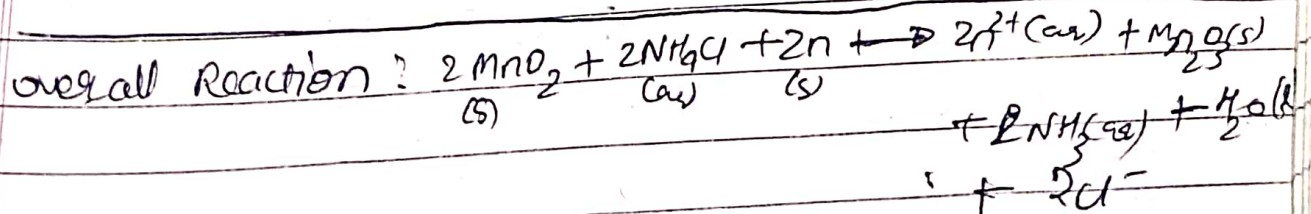 overall Reaction : 2 MnO₂ (s) + 2NH₄Cl (aq) + Zn (s) → Zn²⁺ (aq) + Mn₂O₃(s)
+ 2NH₃(aq) + H₂O(l
+ 2Cl⁻